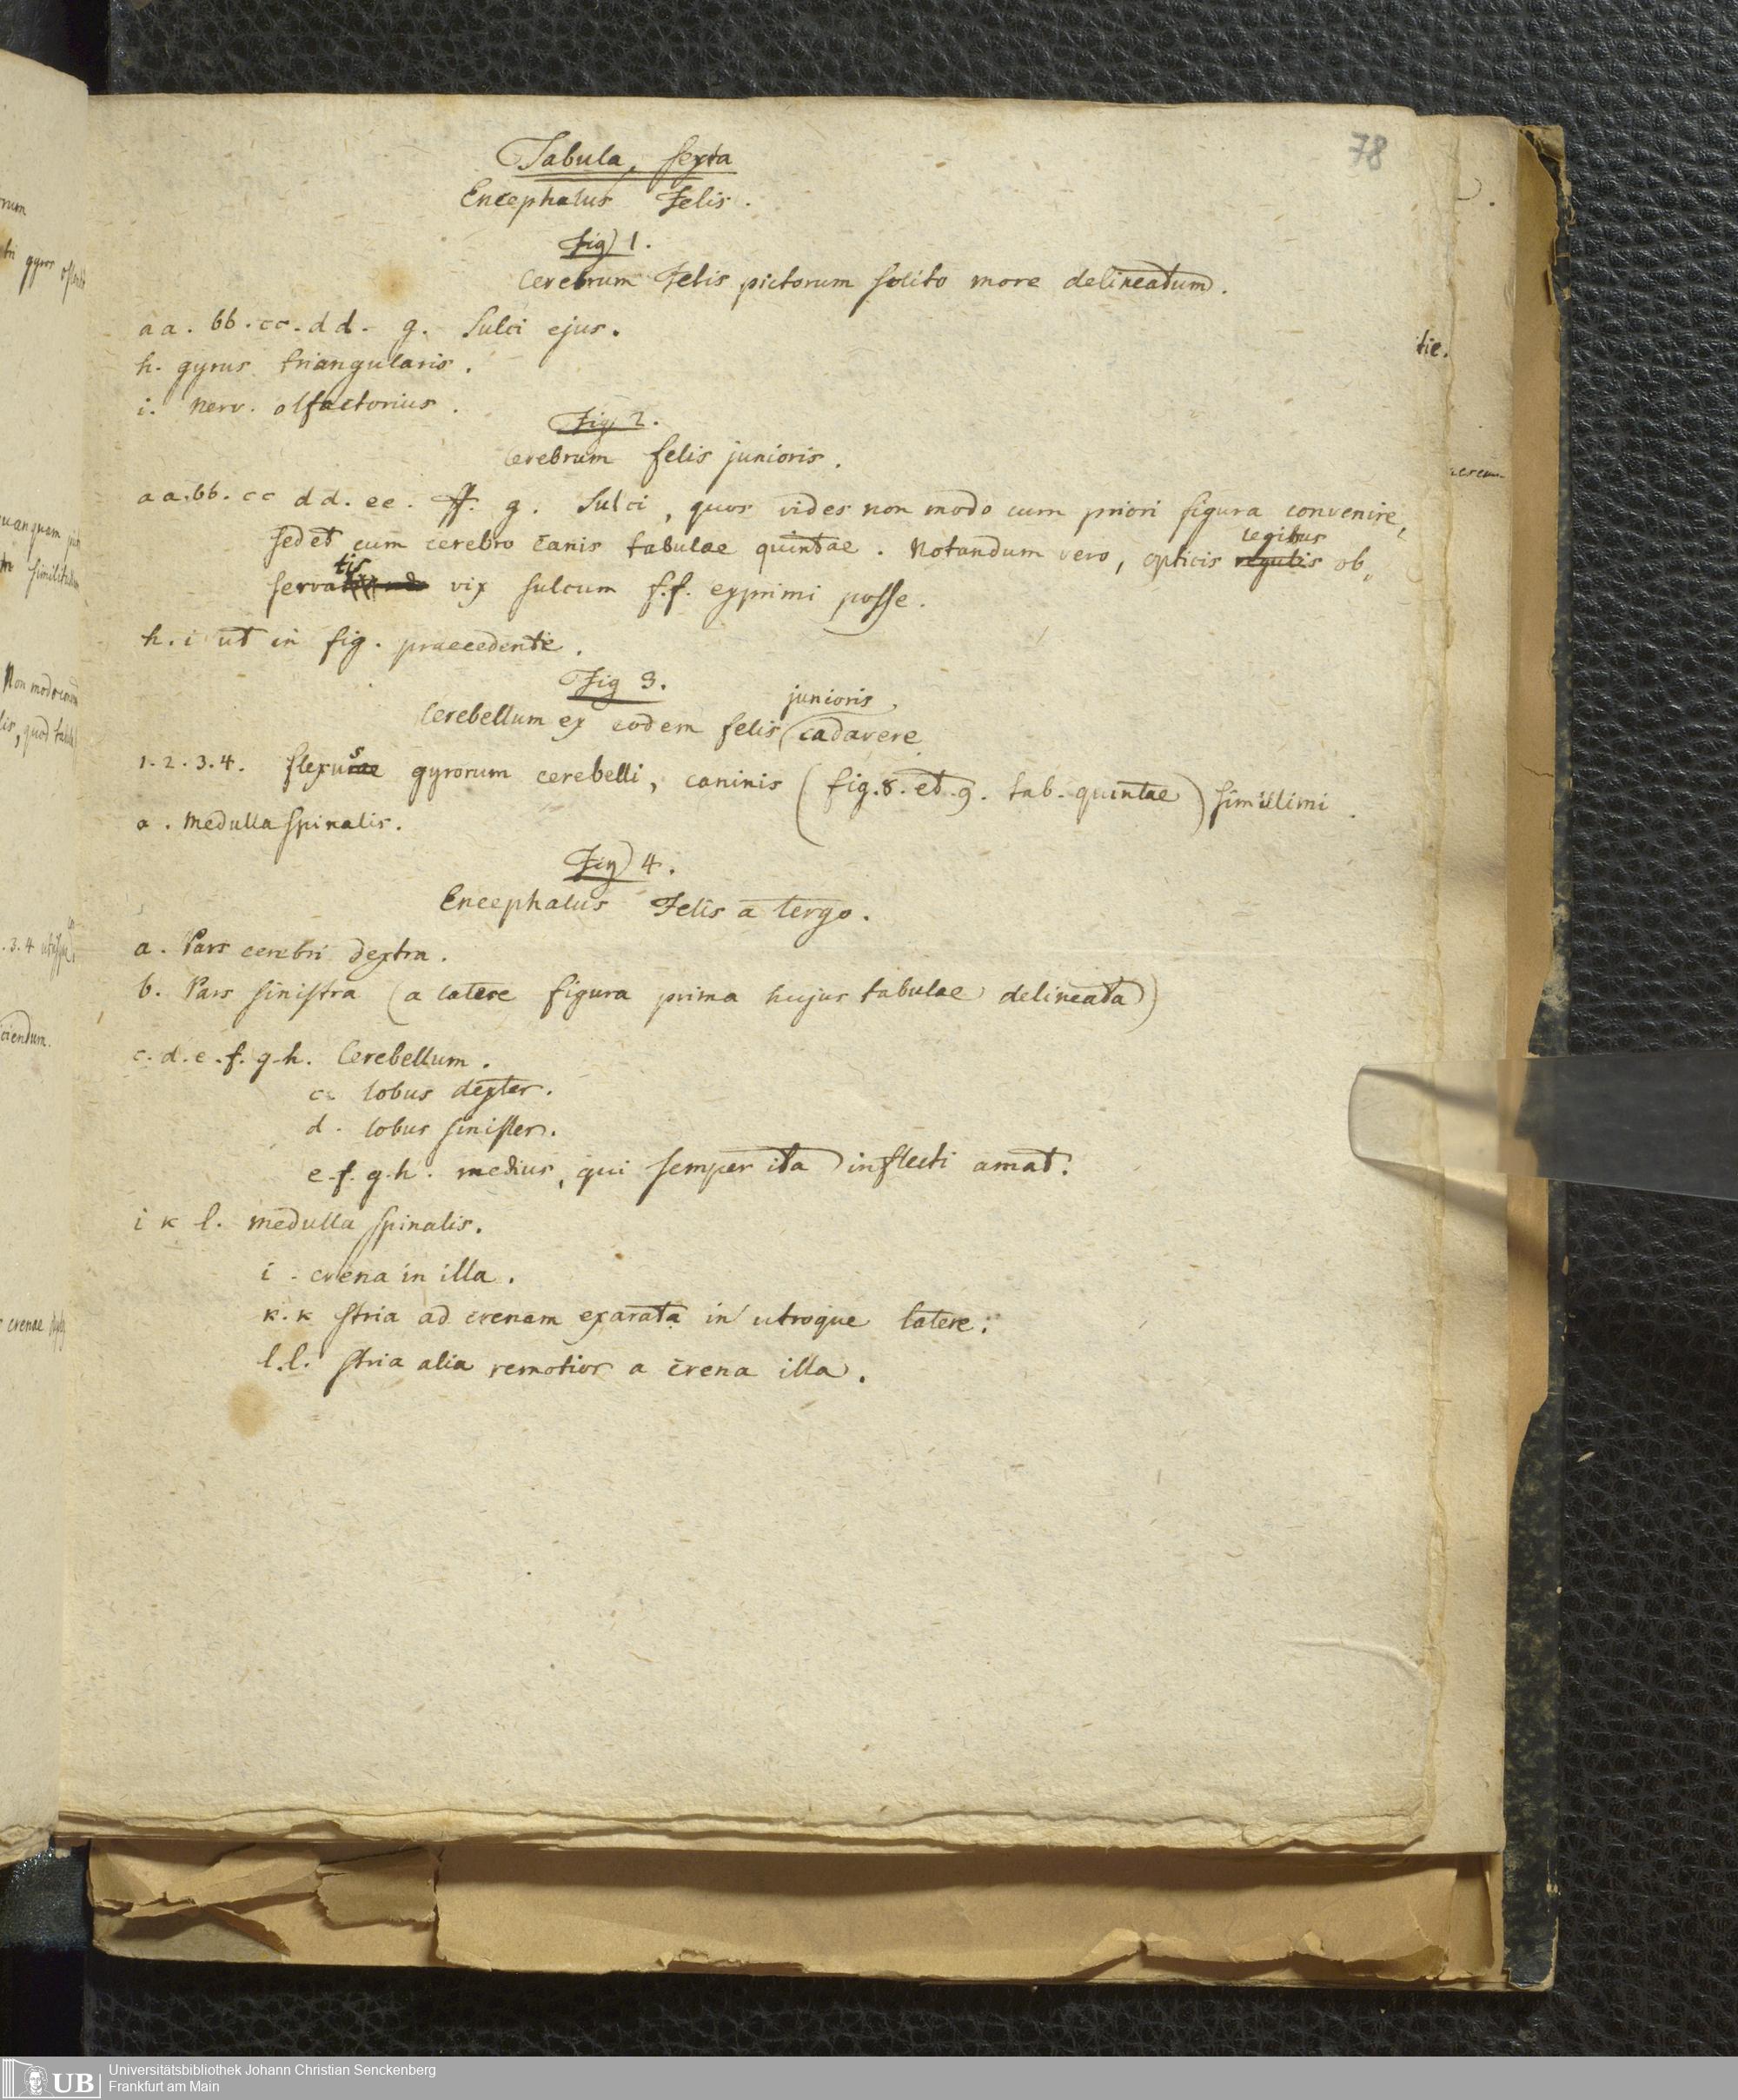 78
Tabula sexta
Encephalus Felis.
Fig 1.
Cerebrum Felis pictorum solito more delineatum.
aa. bb. cc. dd. g. Sulci ejus.
h. gyrus triangularis.
i. Nerv. olfactorius.
Fig 2.
Cerebrum felis junioris.
aa. bb. cc dd. ee. ff. g. Sulci, quos vides non modo cum priori figura convenire,
legibus
sed et cum cerebro canis tabulae quintae. Notandum vero, opticis regulis ob„
servatis vix sulcum f.f. exprimi posse.
h. i ut in fig. praecedente.
Fig 3.
junioris
Cerebellum ex eodem felis cadavere
1. 2. 3. 4. flexus gyrorum cerebelli, caninis (fig. 8. et. 9. tab. quintae) simillimi.
a. Medulla spinalis.
Fig 4.
Encephalus Felis a tergo.
a. Pars cerebri dextra.
b. Pars sinistra (a latere figura prima hujus tabulae delineata)
c. d. e. f. g. h. Cerebellum.
c. lobus dexter.
d. lobus sinister.
e. f. g. h. medius, qui semper ita inflecti amat.
i k l. medulla spinalis.
i. crena in illa.
k. k stria ad crenam exarata in utroque latere.
l. l. stria alia remotior a crena illa.
tie.
ciendum.
UB
Universitätsbibliothek Johann Christian Senckenberg
Frankfurt am Main